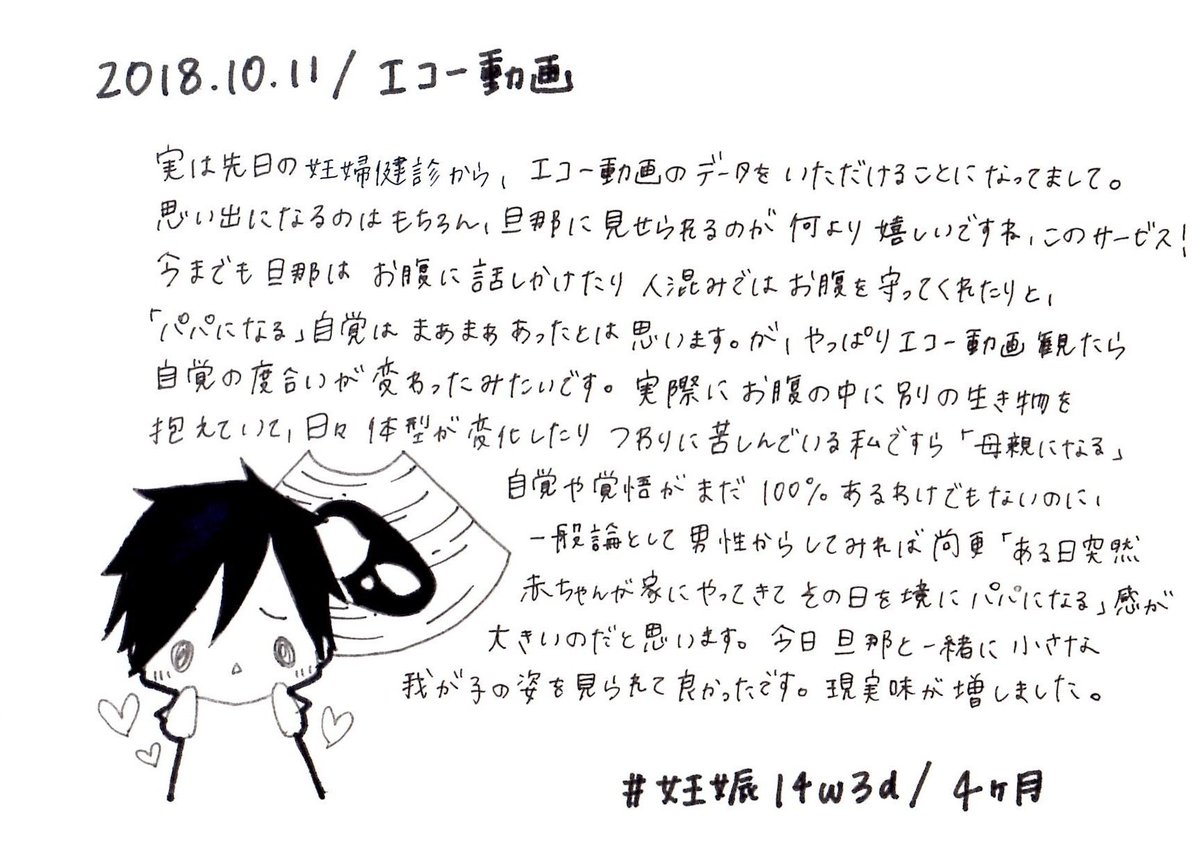 2018.10.11/エコー動画
実は先日の妊婦健診から、エコー動画のデータをいただけることになってまして。
思い出になるのはもちろん、旦那に見せられるのが何より嬉しいですね、このサービス!
今までも旦那はお腹に話しかけたり人混みではお腹を守ってくれたりと、
「パパになる」自覚はまぁまぁあったとは思います。が、やっぱりエコー動画観たら
自覚の度合いが変わったみたいです。実際にお腹の中に別の生き物を
抱えていて、日々体型が変化したりつわりに苦しんでいる私ですら「母親になる」
自覚や覚悟がまだ100%あるわけでもないのに、
一般論として男性からしてみれば尚更「ある日突然
赤ちゃんが家にやってきてその日を境にパパになる」感が
大きいのだと思います。今日旦那と一緒に小さな
我が子の姿を見られて良かったです。現実味が増しました。
#妊娠14w3d/4ヶ月